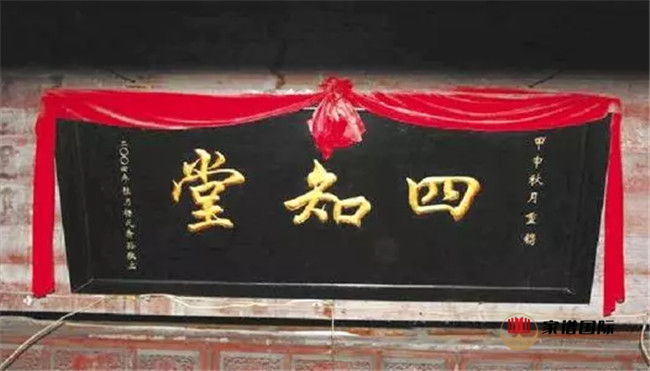 甲申秋月重鐫
四知堂
二〇〇四年
家谱国际